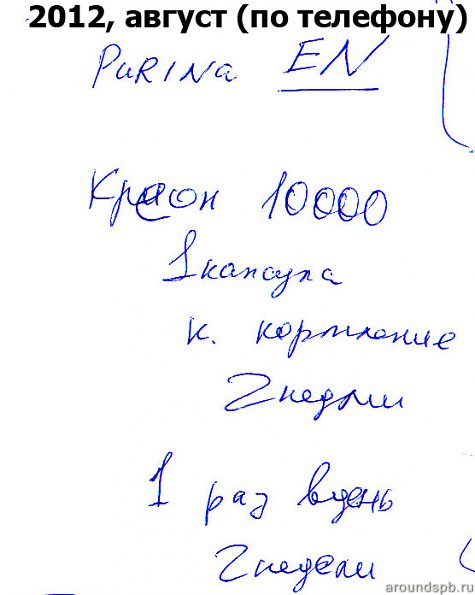 2012, август (по телефону)
PURINA EN
Креон 10000
1 капсула
к. кормление
2 недели
1 раз в день
2 недели
aroundspb.ru